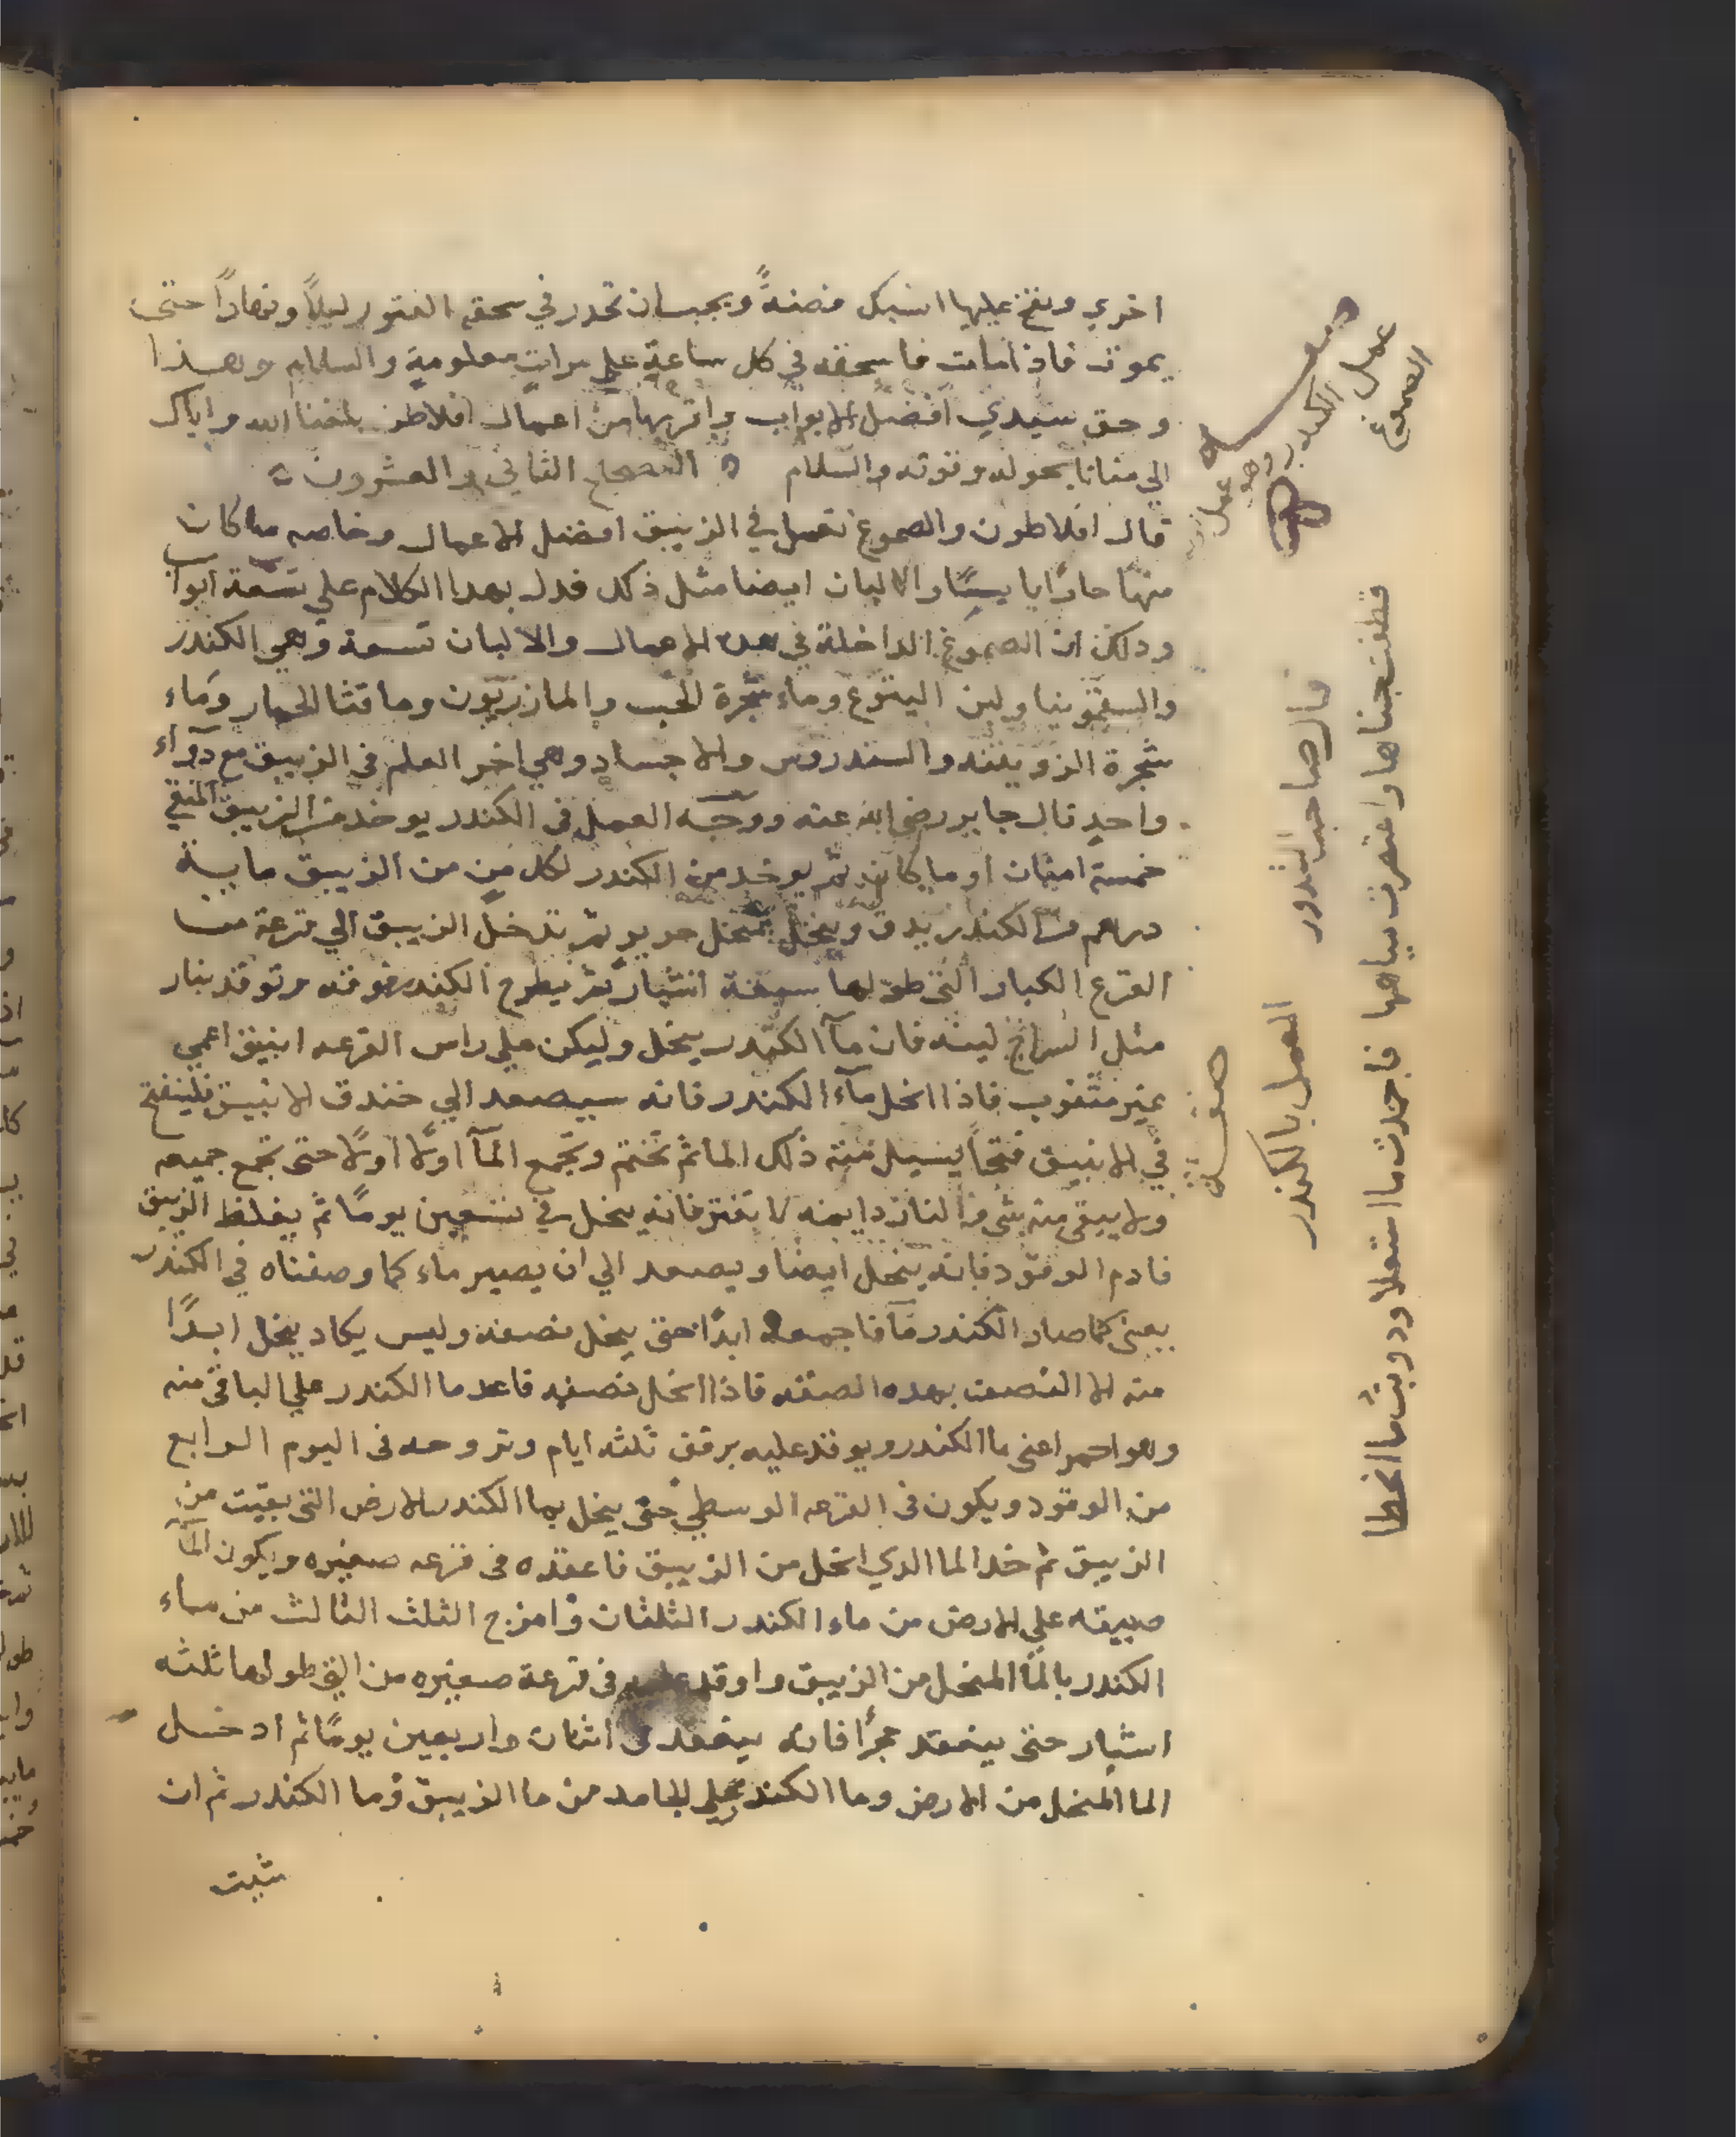 اخري ونفخ عليها انسبك فضةً ويجب ان تحدر في سحقه الفتور ليلاً ونهاراً حتى
يموت فاذا مات فاسحقه في كل ساعةٍ علي مراتٍ معلومةٍ والسلام وهذا
وحق سيدي افضل الابواب واقربها من اعمال افلاطن بلغنا الله واياك
الي منانا بحوله وقوته والسلام ه المصحح الثاني والعشرون
قال افلاطون والصموغ تعمل في الزيبق افضل الاعمال وخاصه ما كان
منها حارًا يابسًا والالبان ايضا مثل ذلك فدل بهذا الكلام علي تسعة ابواب
وذلك ان الصموغ الداخلة في هذه الاعمال والالبان تسعة وهي الكندر
والسقمونيا ولبن اليتوع وماء شجرة الحب والمازريون وما قثا الحمار وماء
شجرة الزويتنه والسندروس والاجساد وهي اخر العلم في الزيبق مع دواء
واحدٍ قال جابر رضي الله عنه ووجه العمل في الكندر يوخذ من الزيبق المنقي
خمسة امنان او ما كان ثم يوخذ من الكندر لكل منٍ من الزيبق ماية
درهم من الكندر يدق وينخل بمنخل حرير ثم تدخل الزيبق الي قرعة من
القرع الكبار التي طولها سبعة اشبار ثم يطرح الكندر فوقه وتوقد بنار
مثل السراج لينه فان مآ الكندر ينحل وليكن علي راس القرعه انبيق اعمي
غير مثقوب فاذا انحل مآء الكندر فانه سيصعد الي خندق الانبيق فلينفتح
في الانبيق فتحاً يسيل منه ذلك الما ثم تختم وتجمع المآ اولًا اولًا حتى تجمع جميعه
ولا يبقى منه شي والنار دايمه لا تفتر فانه ينحل في تسعين يومًا ثم يغلظ الزيبق
فادم الوقود فانه ينحل ايضا ويصعد الي ان يصير ماء كما وصفناه في الكندر
يعني كما صار الكندر مآ فاجمعه ابدًا حتى ينحل نصفه وليس يكاد ينحل ابدًا
منه الا النصف بهذه الصفه فاذا انحل نصفه فاعد ما الكندر علي الباقي منه
وهو احمر اعني ما الكندر ويوقد عليه برفق ثلثه ايام وتروحه في اليوم الرابع
من الوقود ويكون في القرعه الوسطي حتى ينحل بما الكندر الارض التي بقيت من
الزيبق ثم خد الما الدي انحل من الزيبق فاعقده في قرعه صغيره ويكون المآ
صبيته علي الارض من ماء الكندر الثلثان وامزج الثلث الثالث من ماء
الكندر بالمآ المنحل من الزيبق واوقد عليه في قرعة صغيره من التي طولها ثلثه
اشبار حتى ينعقد حجرًا فانه ينعقد في اثنان واربعين يومًا ثم ادخل
الما المنحل من الارض وما الكندر علي الجامد من ما الزيبق وما الكندر ثم ان
شيت
عمل الكندر وهو عمل
الصموغ
صفة
العمل بالكندر
قال صاحب الشدور
قطفت جناها واعتصرت مياهها فاجمدت ما استعلا ودوبت ما انحطا